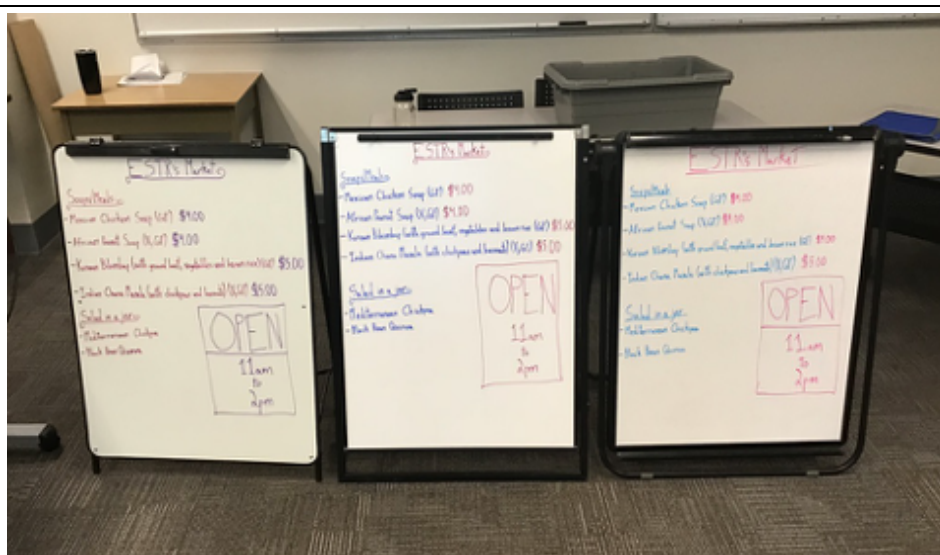 ESTR's Market
Soups/Meals
- Mexican Chicken Soup (GF) $4.00
- African Peanut Soup (V,GF) $4.00
- Korean Bibimbap (with ground beef, vegetables and brown rice) (GF) $5.00
- Indian Chana Masala (with chickpeas and basmati) (V,GF) $5.00
Salad in a jar:
- Mediterranean Chickpea
- Black Bean Quinoa
OPEN
11am
to
2pm
ESTR's Market
Soups/Meals
- Mexican Chicken Soup (GF) $4.00
- African Peanut Soup (V,GF) $4.00
- Korean Bibimbap (with ground beef, vegetables and brown rice) (GF) $5.00
- Indian Chana Masala (with chickpeas and basmati) (V,GF) $5.00
Salad in a jar:
- Mediterranean Chickpea
- Black Bean Quinoa
OPEN
11am
to
2pm
ESTR's Market
Soups/Meals
- Mexican Chicken Soup (GF) $4.00
- African Peanut Soup (V,GF) $4.00
- Korean Bibimbap (with ground beef, vegetables and brown rice) (GF) $5.00
- Indian Chana Masala (with chickpeas and basmati) (V,GF) $5.00
Salad in a jar:
- Mediterranean Chickpea
- Black Bean Quinoa
OPEN
11am
to
2pm